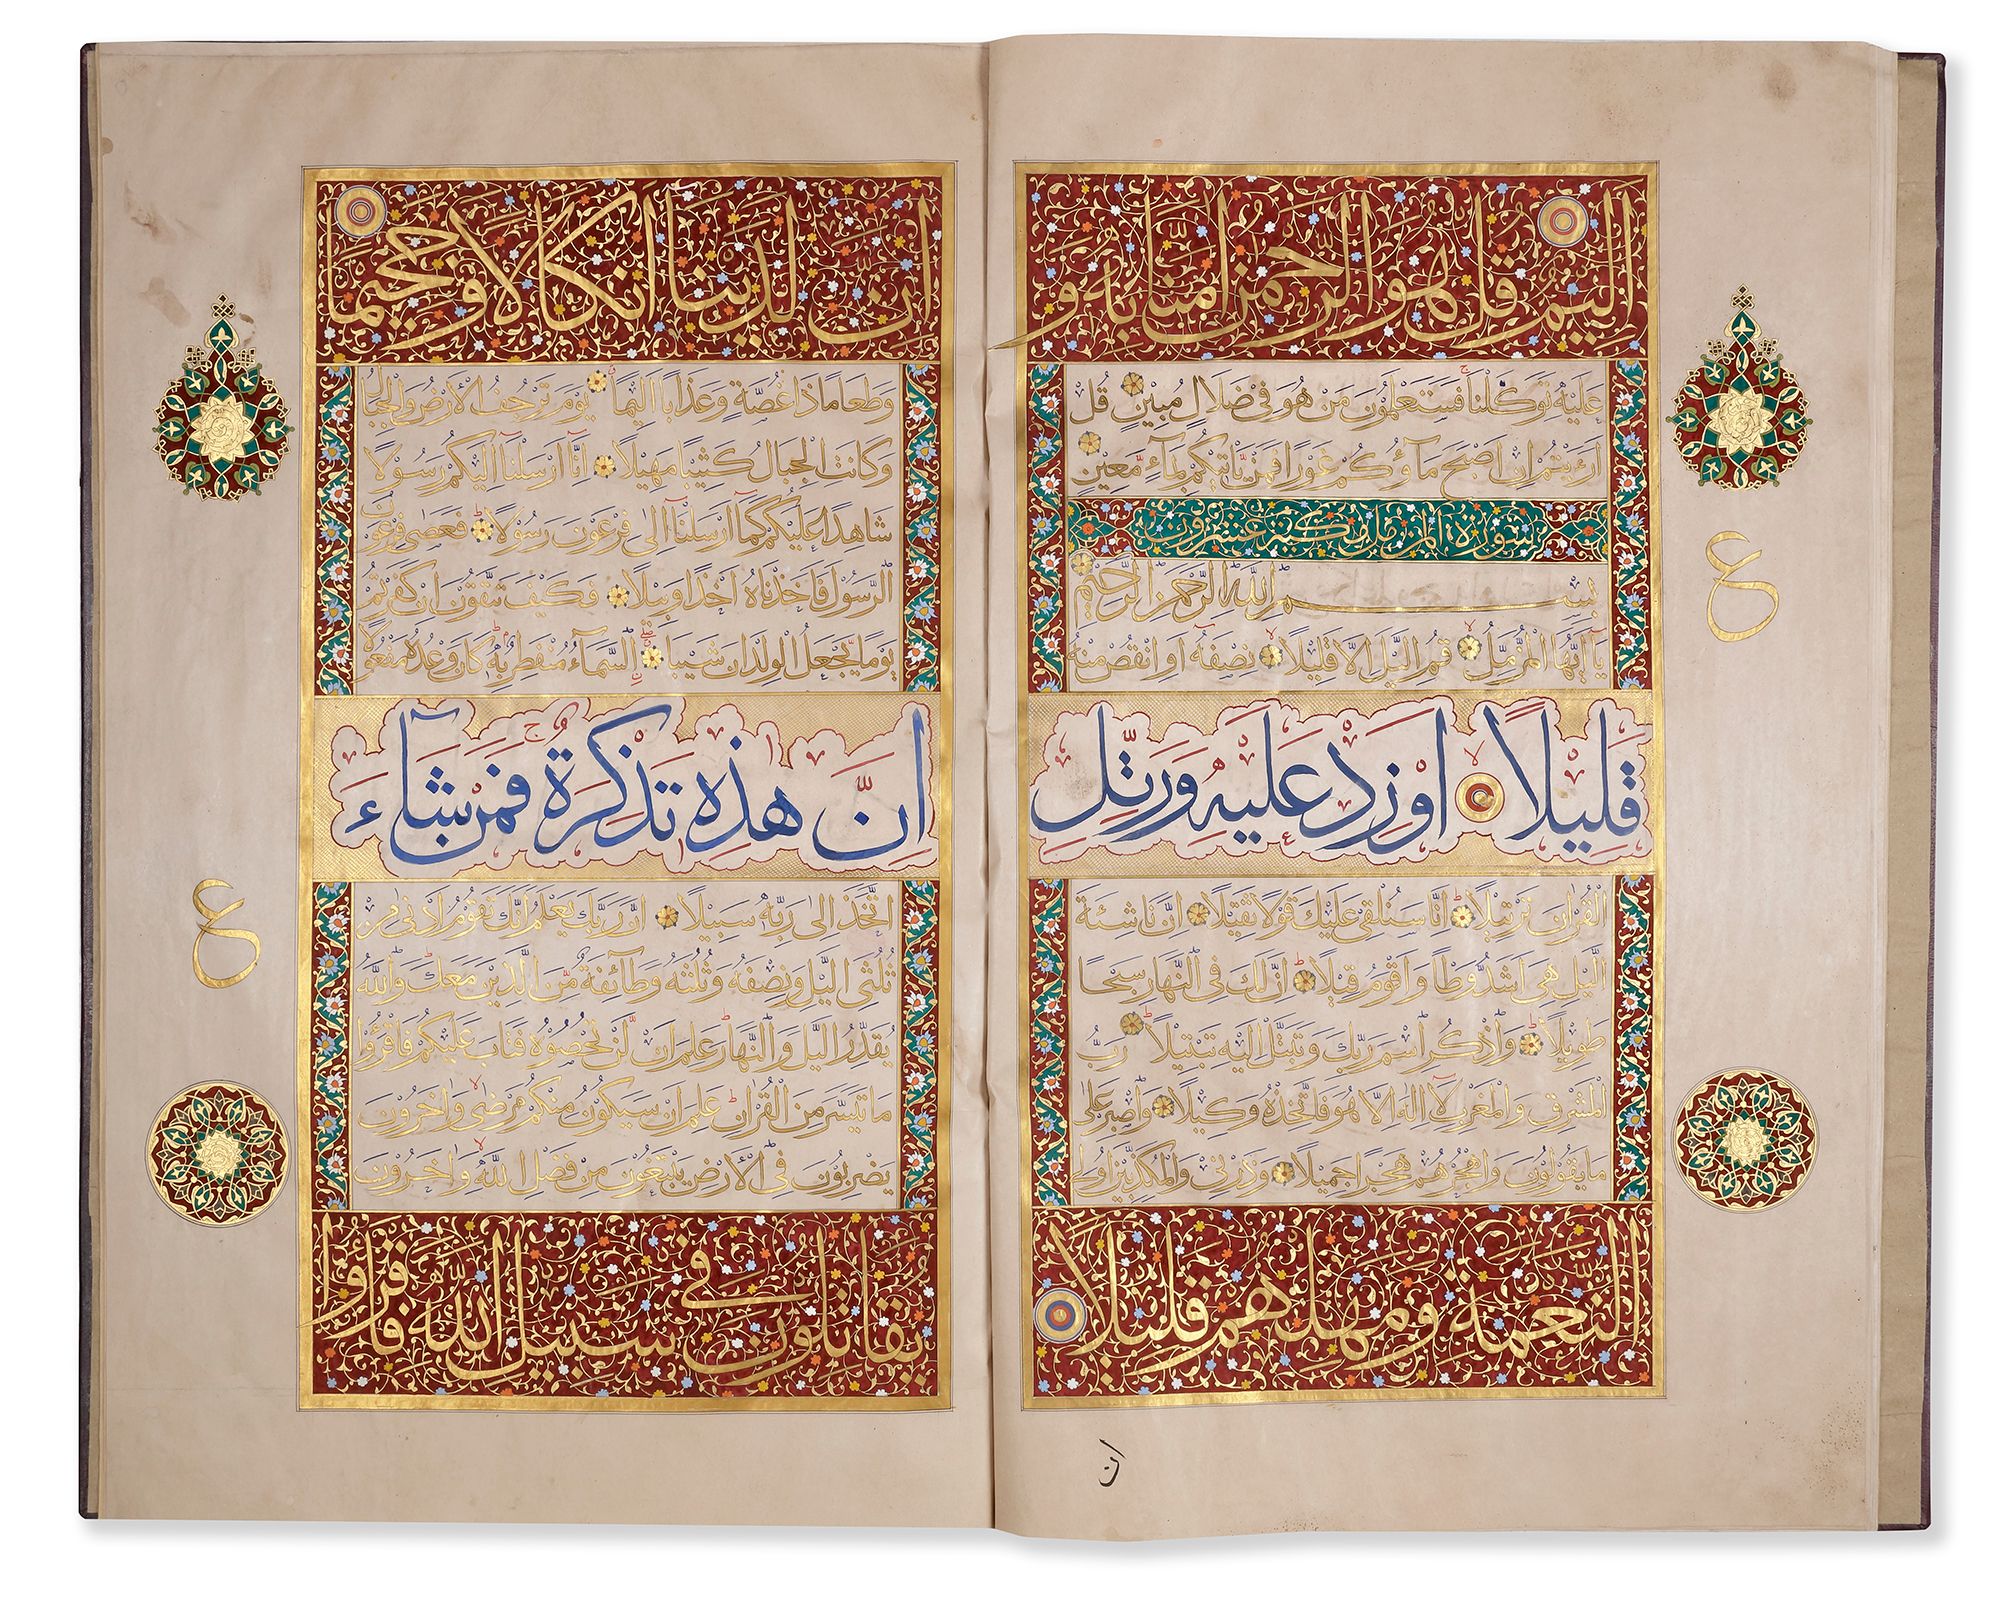 اليم قل هو الرحمن امنا به و
عليه توكلنا فستعلمون من هو في ضلال مبين قل
ارءيتم ان اصبح ماؤكم غورا فمن يأتيكم بماء معين
سورة المزمل مكية عشرون
بسم الله الرحمن الرحيم
يا أيها المزمل قم الليل الا قليلا نصفه او انقص منه
قليلا او زد عليه ورتل
القران ترتيلا انا سنلقي عليك قولا ثقيلا ان ناشئة
الليل هي اشد وطأ واقوم قيلا ان لك في النهار سبحا
طويلا واذكر اسم ربك وتبتل اليه تبتيلا رب
المشرق والمغرب لا اله الا هو فاتخذه وكيلا واصبر على
ما يقولون واهجرهم هجرا جميلا وذرني والمكذبين اولي
النعمة ومهلهم قليلا
ع
ان
ان لدينا انكالا وجحيما
وطعاما ذا غصة وعذابا اليما يوم ترجف الأرض والجبال
وكانت الجبال كثيبا مهيلا انا ارسلنا اليكم رسولا
شاهدا عليكم كما ارسلنا الى فرعون رسولا فعصى فرعون
الرسول فاخذناه اخذا وبيلا فكيف تتقون ان كفرتم
يوما يجعل الولدان شيبا السماء منفطر به كان وعده مفعولا
ان هذه تذكرة فمن شاء
اتخذ الى ربه سبيلا ان ربك يعلم انك تقوم ادنى من
ثلثي الليل ونصفه وثلثه وطائفة من الذين معك والله
يقدر الليل والنهار علم ان لن تحصوه فتاب عليكم فاقرؤا
ما تيسر من القران علم ان سيكون منكم مرضى واخرون
يضربون في الأرض يبتغون من فضل الله واخرون
يقاتلون في سبيل الله فاقرؤا
ع